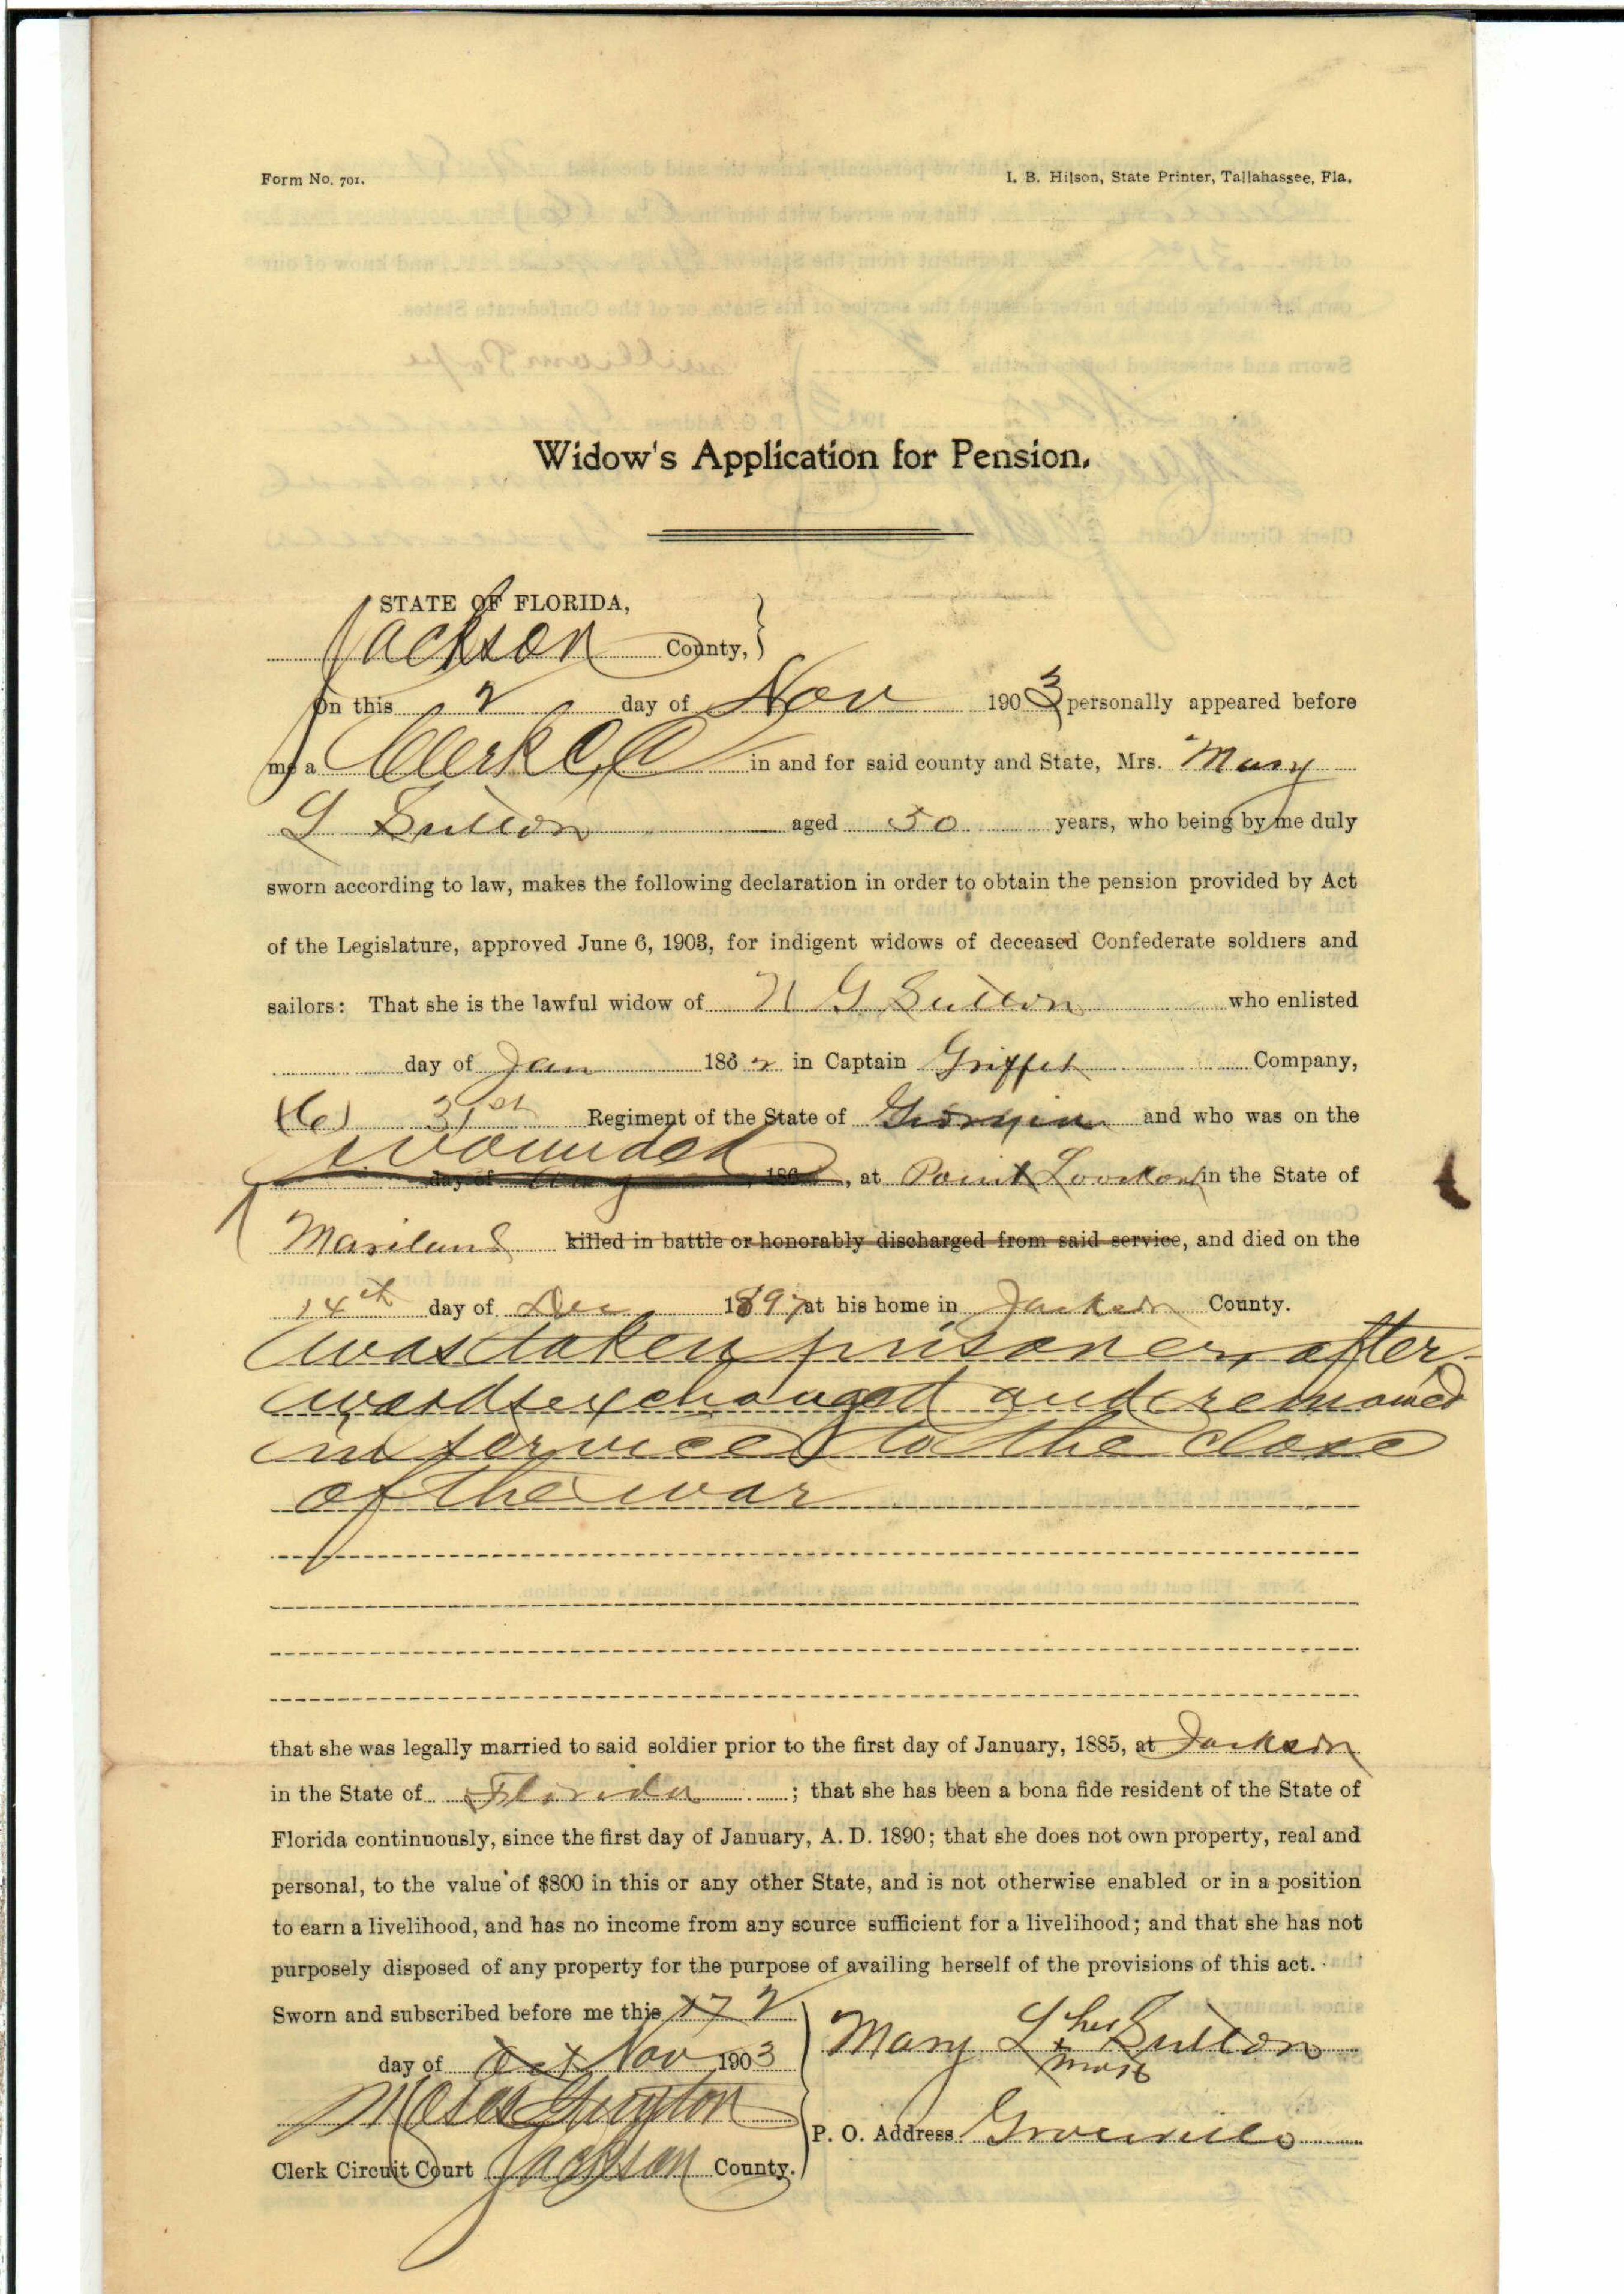 Form No. 701.
I. B. Hilson, State Printer, Tallahassee, Fla.
Widow's Application for Pension.
STATE OF FLORIDA,
Jackson County, }
On this 2 day of Nov 1903 personally appeared before
me a Clerk C C in and for said county and State, Mrs. Mary
L Sutton aged 50 years, who being by me duly
sworn according to law, makes the following declaration in order to obtain the pension provided by Act
of the Legislature, approved June 6, 1903, for indigent widows of deceased Confederate soldiers and
sailors: That she is the lawful widow of N G Sutton who enlisted
day of Jan 1862 in Captain Griffet Company,
31st Regiment of the State of Georgia and who was on the
wounded
day of Aug 186 , at Point Lookout in the State of
Mariland killed in battle or honorably discharged from said service, and died on the
14th day of Dec 1897 at his home in Jackson County.
was taken prisoner, after-
wards exchanged and remained
in service to the close
of the war
that she was legally married to said soldier prior to the first day of January, 1885, at Jackson
in the State of Florida ; that she has been a bona fide resident of the State of
Florida continuously, since the first day of January, A. D. 1890; that she does not own property, real and
personal, to the value of $800 in this or any other State, and is not otherwise enabled or in a position
to earn a livelihood, and has no income from any source sufficient for a livelihood; and that she has not
purposely disposed of any property for the purpose of availing herself of the provisions of this act.
Sworn and subscribed before me this 17 2
day of Oct Nov 1903
Moses Guyton
Clerk Circuit Court Jackson County.
Mary L her x mark Sutton
P. O. Address